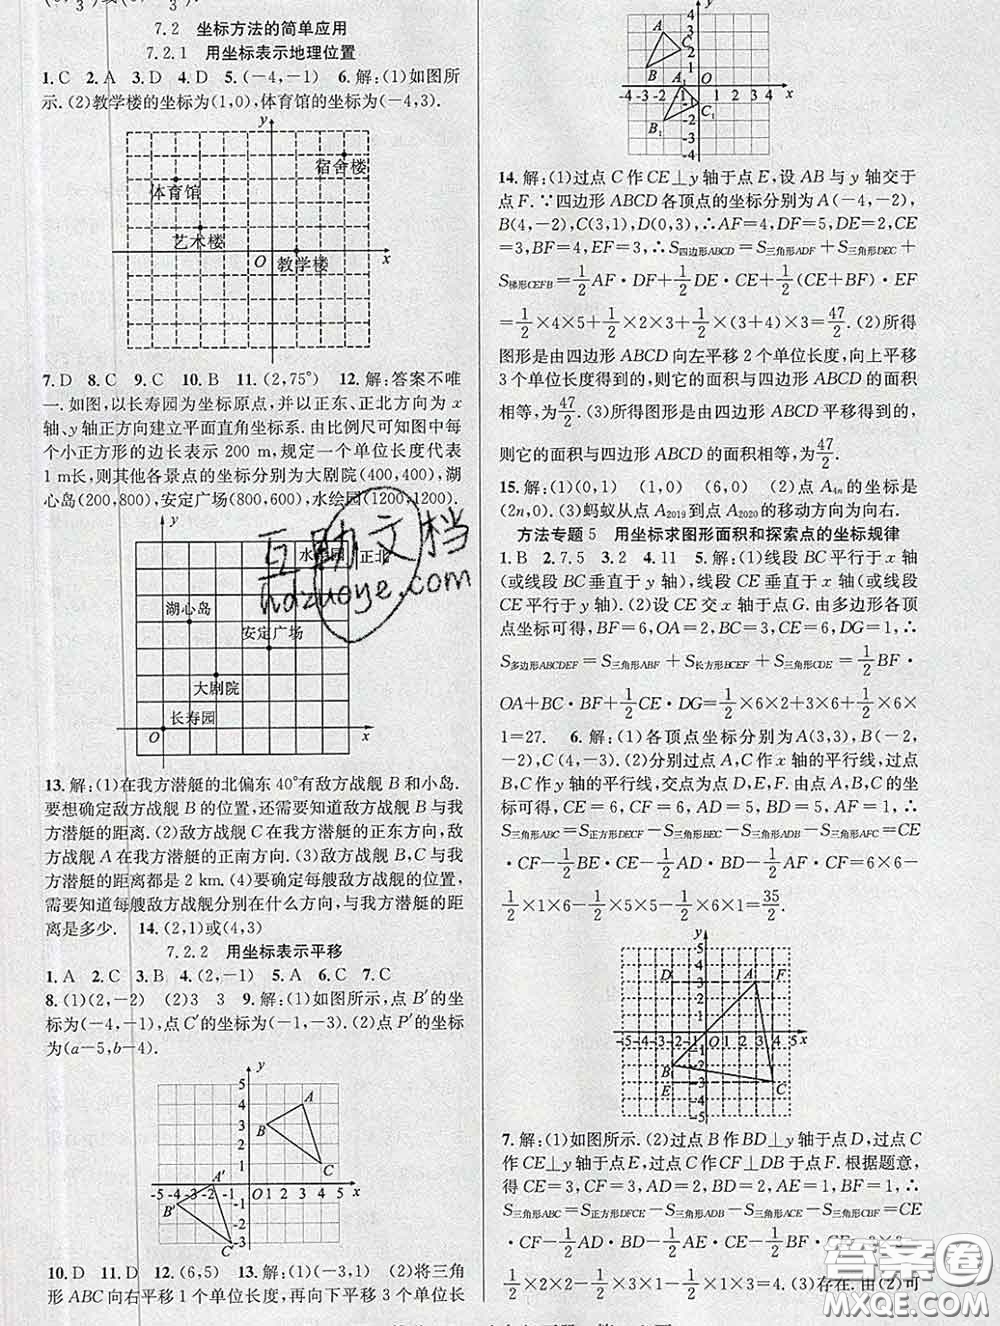 7.2 坐标方法的简单应用
7.2.1 用坐标表示地理位置
1.C 2.A 3.D 4.D 5.(-4,-1) 6.解:(1)如图所
示.(2)教学楼的坐标为(1,0),体育馆的坐标为(-4,3).
y
宿舍楼
体育馆
艺术楼
O 教学楼 x
7.D 8.C 9.C 10.B 11.(2,75°) 12.解:答案不唯
一.如图,以长寿园为坐标原点,并以正东、正北方向为 x
轴、y 轴正方向建立平面直角坐标系.由比例尺可知图中每
个小正方形的边长表示 200 m,规定一个单位长度代表
1 m长,则其他各景点的坐标分别为大剧院(400,400),湖
心岛(200,800),安定广场(800,600),水绘园(1200,1200).
y
水绘园 正北
湖心岛
安定广场
大剧院
长寿园
O x
13.解:(1)在我方潜艇的北偏东 40°有敌方战舰 B 和小岛.
要想确定敌方战舰 B 的位置,还需要知道敌方战舰 B 与我
方潜艇的距离.(2)敌方战舰 C 在我方潜艇的正东方向,敌
方战舰 A 在我方潜艇的正南方向.(3)敌方战舰 B,C 与我
方潜艇的距离都是 2 km.(4)要确定每艘敌方战舰的位置,
需要知道每艘敌方战舰分别在什么方向,与我方潜艇的距
离是多少. 14.(2,1)或(4,3)
7.2.2 用坐标表示平移
1.A 2.C 3.B 4.(2,-1) 5.A 6.C 7.C
8.(1)(2,-2) (2)3 3 9.解:(1)如图所示,点 B′的坐
标为(-4,-1),点 C′的坐标为(-1,-3).(2)点 P′的坐标
为(a-5,b-4).
y
5
4
3
2
1
A
B
C
A′
B′
C′
-5 -4 -3 -2 -1 O 1 2 3 4 5 x
-1
-2
-3
10.D 11.D 12.(6,5) 13.解:(1)(-3,1) (2)将三角
形 ABC 向右平移 1 个单位长度,再向下平移 3 个单位长
4
3
2
1
A
B
C
A₁
B₁
C₁
-4 -3 -2 -1 O 1 2 3 4 x
-1
-2
-3
-4
14.解:(1)过点 C 作 CE⊥y 轴于点 E,设 AB 与 y 轴交于
点 F.∵四边形 ABCD 各顶点的坐标分别为 A(-4,-2),
B(4,-2),C(3,1),D(0,3),∴AF=4,DF=5,DE=2,CE
=3,BF=4,EF=3,∴S四边形ABCD=S三角形ADF+S三角形DEC+
S梯形CEFB=1/2AF·DF+1/2DE·CE+1/2(CE+BF)·EF
=1/2×4×5+1/2×2×3+1/2×(3+4)×3=47/2.(2)所得
图形是由四边形 ABCD 向左平移 2 个单位长度,向上平移
3 个单位长度得到的,则它的面积与四边形 ABCD 的面积
相等,为47/2.(3)所得图形是由四边形 ABCD 平移得到的,
则它的面积与四边形 ABCD 的面积相等,为47/2.
15.解:(1)(0,1) (1,0) (6,0) (2)点 A4n的坐标是
(2n,0).(3)蚂蚁从点 A2019到点 A2020的移动方向为向右.
方法专题 5 用坐标求图形面积和探索点的坐标规律
1.B 2.7.5 3.2 4.11 5.解:(1)线段 BC 平行于 x 轴
(或线段 BC 垂直于 y 轴),线段 CE 垂直于 x 轴(或线段
CE 平行于 y 轴).(2)设 CE 交 x 轴于点 G.由多边形各顶
点坐标可得,BF=6,OA=2,BC=3,CE=6,DG=1,∴
S多边形ABCDEF=S三角形ABF+S长方形BCEF+S三角形CDE=1/2BF·
OA+BC·BF+1/2CE·DG=1/2×6×2+3×6+1/2×6×1
=27. 6.解:(1)各顶点坐标分别为A(3,3),B(-2,
-2),C(4,-3).(2)分别过点 A,C 作 x 轴的平行线,过点
B,C 作 y 轴的平行线,交点为点 D,E,F.由点 A,B,C 的坐
标可得,CE=6,CF=6,AD=5,BD=5,BE=1,AF=1,∴
S三角形ABC=S正方形DECF-S三角形BEC-S三角形ADB-S三角形AFC=CE
·CF-1/2BE·CE-1/2AD·BD-1/2AF·CF=6×6-
1/2×1×6-1/2×5×5-1/2×1×6=35/2.
y
5
4
3
2
1
D A F
-5 -4 -3 -2 -1 O 1 2 3 4 5 x
B
E
C
-1
-2
-3
-4
-5
7.解:(1)如图所示.(2)过点 B 作 BD⊥y 轴于点 D,过点 C
作 CE⊥y 轴于点 E,过点 C 作 CF⊥DB 于点 F.根据题意,
得 CE=3,CF=3,AD=2,BD=2,AE=1,BF=1,∴
S三角形ABC=S正方形DFCE-S三角形ADB-S三角形ACE-S三角形CBF=CE
·CF-1/2AD·BD-1/2AE·CE-1/2BF·CF=3×3-
1/2×2×2-1/2×1×3-1/2×1×3=4.(3)存在.由(2)可
互助文档
hdzuoye.com
答案圈
MXQE.COM